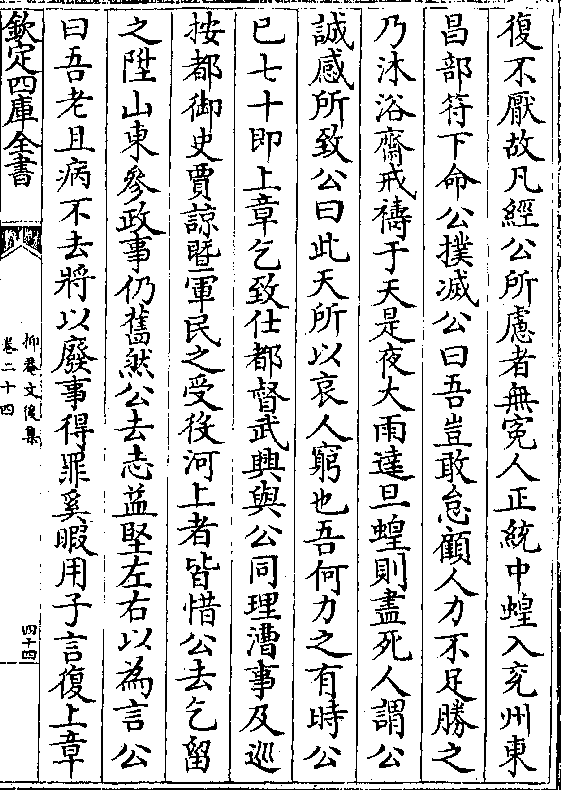 復不厭故凡經公所慮者無寃人正統中蝗入兖州東
昌部符下命公撲滅公曰吾豈敢怠顧人力不足勝之
乃沐浴齋戒禱于天是夜大雨達旦蝗則盡死人謂公
誠感所致公曰此天所以哀人窮也吾何力之有時公
已七十即上章乞致仕都督武興與公同理漕事及巡
按都御史賈諒曁軍民之受役河上者皆惜公去乞留
之陞山東參政事仍舊然公去志益堅左右以為言公
曰吾老且病不去將以廢事得罪奚暇用子言復上章
欽定四庫全書
抑菴文後集
卷二十四
四十四